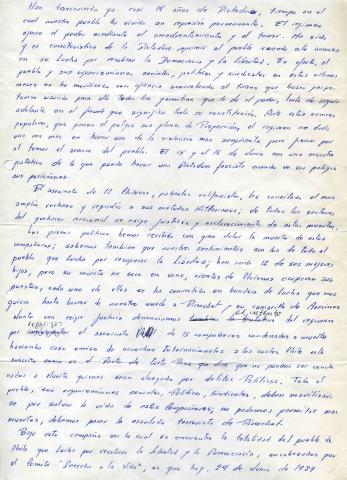 Han transcurrido ya casi 14 años de Dictadura, tiempo en el
cual nuestro pueblo ha vivido en represión permanente. El regimen
ejerce el poder mediante el amedrentamiento y el terror. Ha sido
y es caracteristico de la Dictadura oprimir al pueblo cuando este avanza
en su lucha por recobrar la Democracia y la libertad. En efecto, el
pueblo y sus organizaciones sociales, politicas y sindicales en estos ultimos
meses se ha movilizado con eficacia al tirano que busca
todas las garantias que le da el poder, luego de seguir
adelante con el fraude que significa toda su constitución. Ante este avance
popular, que ponen el peligro sus planes de Proyección, el regimen no duda
una vez mas en hacer uso de la violencia mas para frenar por
el temor el avance del pueblo. El 15 y el 16 de Junio son una muestra
palpable de lo que puede hacer una Dictadura fascista cuando ve en peligro
sus posiciones.
El asesinato de 12 Chilenos, patriotas, ha concitado el mas
amplio rechazo y repudio a sus metodos Hitlerianos; de todos los sectores
del quehacer nacional se exige justicia y esclarecimiento de estas muertes.
Los presos politicos hemos recibido con gran dolor la muerte de estos
compañeros; sabemos tambien que nuestros sentimientos son los de todo el
pueblo que lucha por recuperar la libertad; han caido 12 de sus mejores
hijos, pero su muerte no sera en vano, cientos de Chilenos ocuparan sus
puestos, cada uno de ellos se ha convertido en bandera de lucha que nos
guiara hasta borrar de nuestro suelo a Pinochet y su camarilla de Asesinos
Junto con exigir Justicia denunciamos el intento del regimen
por legalizar el asesinato de 15 compañeros condenados a muerte
haciendo caso omiso de acuerdos Internacionales a los cuales Chile esta
suscrito como es el Pacto de Costa Rica que dice que no pueden ser conde
nados a Muerte quienes sean juzgados por delitos Politicos. Todo el
pueblo, sus organizaciones sociales, Politicas, Sindicales, deben movilizar
se por salvar la vida de estos Compañeros; no podemos permitir mas
muertes, debemos parar la escalada terrorista de Pinochet.
Bajo esta campaña en la cual se encuentra la totalidad del pueblo de
Chile que lucha por recobrar la libertad y la Democracia, encabezados por
el Comite "Derecho a la Vida", es que hoy, 24 de Junio de 1987